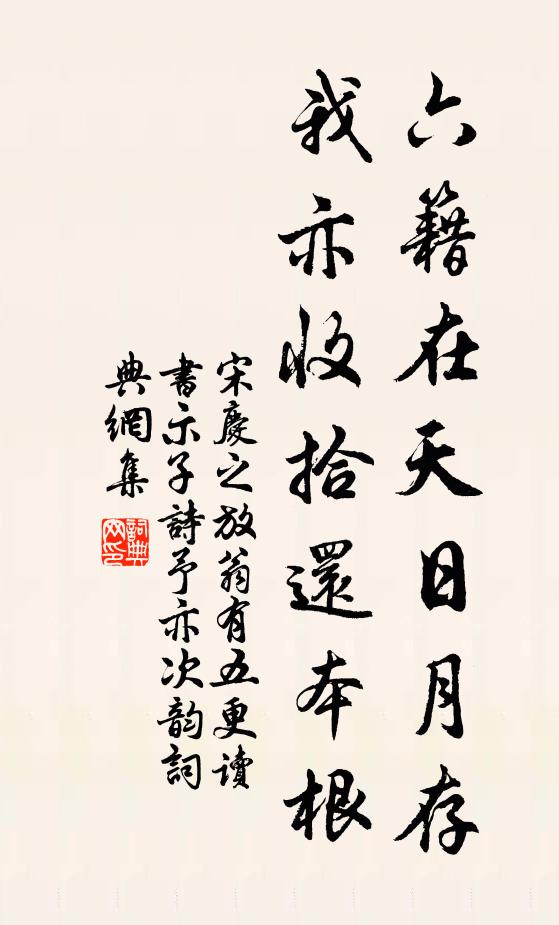 六籍在天日月存
我亦收拾還本根
宋慶之放翁有五更讀
書示子詩予亦次韵詞
典網集
詞典
网印